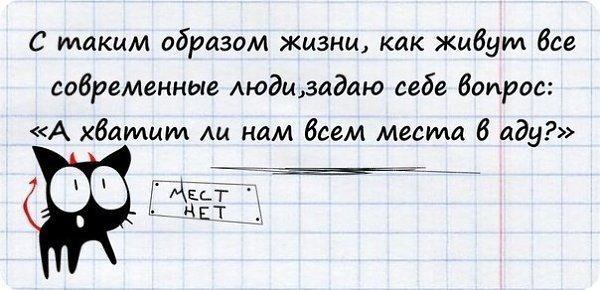 С таким образом жизни, как живут все
современные люди,задаю себе вопрос:
«А хватит ли нам всем места в аду?»
МЕСТ
НЕТ